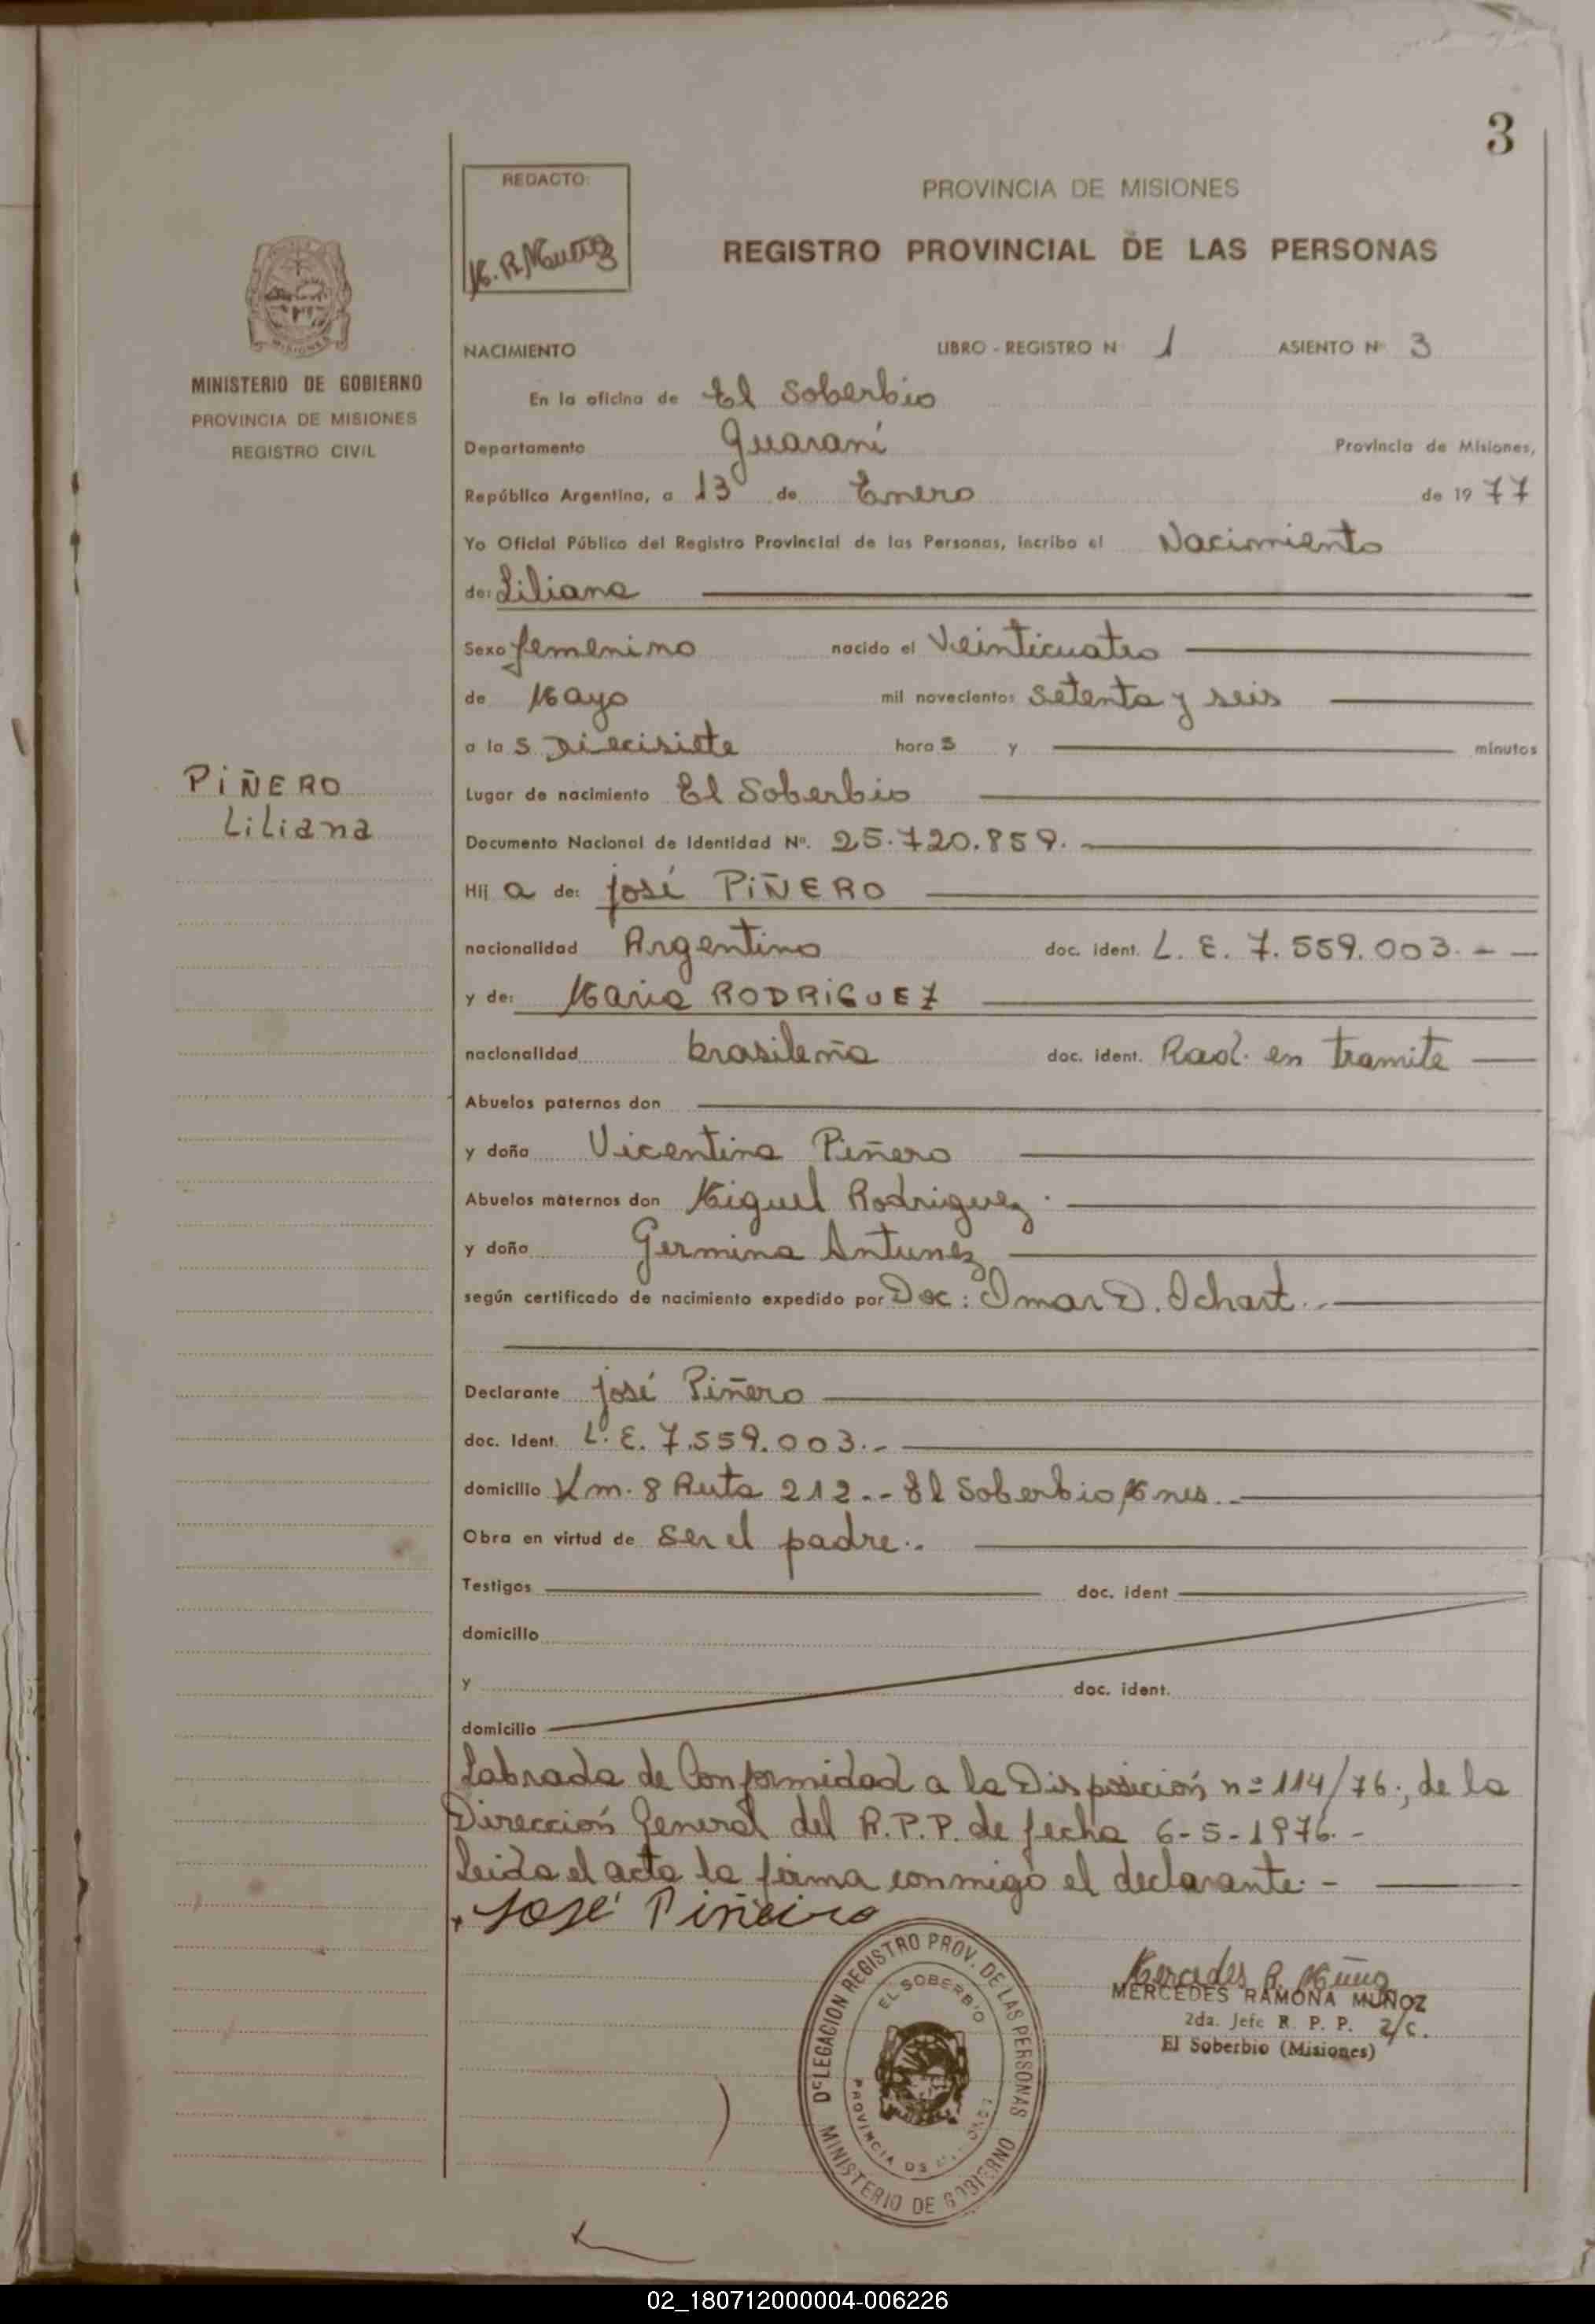 3
REDACTO:
M. R. Muñoz
PROVINCIA DE MISIONES
REGISTRO PROVINCIAL DE LAS PERSONAS
MISIONES
MINISTERIO DE GOBIERNO
PROVINCIA DE MISIONES
REGISTRO CIVIL
NACIMIENTO LIBRO - REGISTRO N° 1 ASIENTO N° 3
En la oficina de El Soberbio
Departamento Guaraní Provincia de Misiones,
República Argentina, a 13 de Enero de 1977
Yo Oficial Público del Registro Provincial de las Personas, incribo el Nacimiento
de: Liliana
Sexo femenino nacido el Veinticuatro
de Mayo mil novecientos setenta y seis
a las Diecisiete horas y minutos
PIÑERO
Liliana
Lugar de nacimiento El Soberbio
Documento Nacional de Identidad Nº. 25.720.859.
Hija de: José PIÑERO
nacionalidad Argentino doc. ident. L. E. 7.559.003.-
y de: Maria RODRIGUEZ
nacionalidad brasileña doc. ident. Rad. en tramite
Abuelos paternos don
y doña Vicentina Piñero
Abuelos maternos don Miguel Rodriguez.
y doña Germina Antunez
según certificado de nacimiento expedido por Doc: Omar D. Ochart.-
Declarante José Piñero
doc. Ident. L. E. 7.559.003.-
domicilio Km. 8 Ruta 212.- El Soberbio, Mnes.-
Obra en virtud de ser el padre.-
Testigos doc. ident
domicilio
y doc. ident.
domicilio
Labrada de Conformidad a la Disposición nº 114/76; de la
Dirección General del R.P.P. de fecha 6-5-1976.-
Leida el acta la firma conmigo el declarante.-
José Piñeiro
DELEGACION REGISTRO PROV. DE LAS PERSONAS
EL SOBERBIO
PROVINCIA DE MISIONES
MINISTERIO DE GOBIERNO
Mercedes R. Muñoz
MERCEDES RAMONA MUÑOZ
2da. Jefe R. P. P. a/c.
El Soberbio (Misiones)
02_180712000004-006226